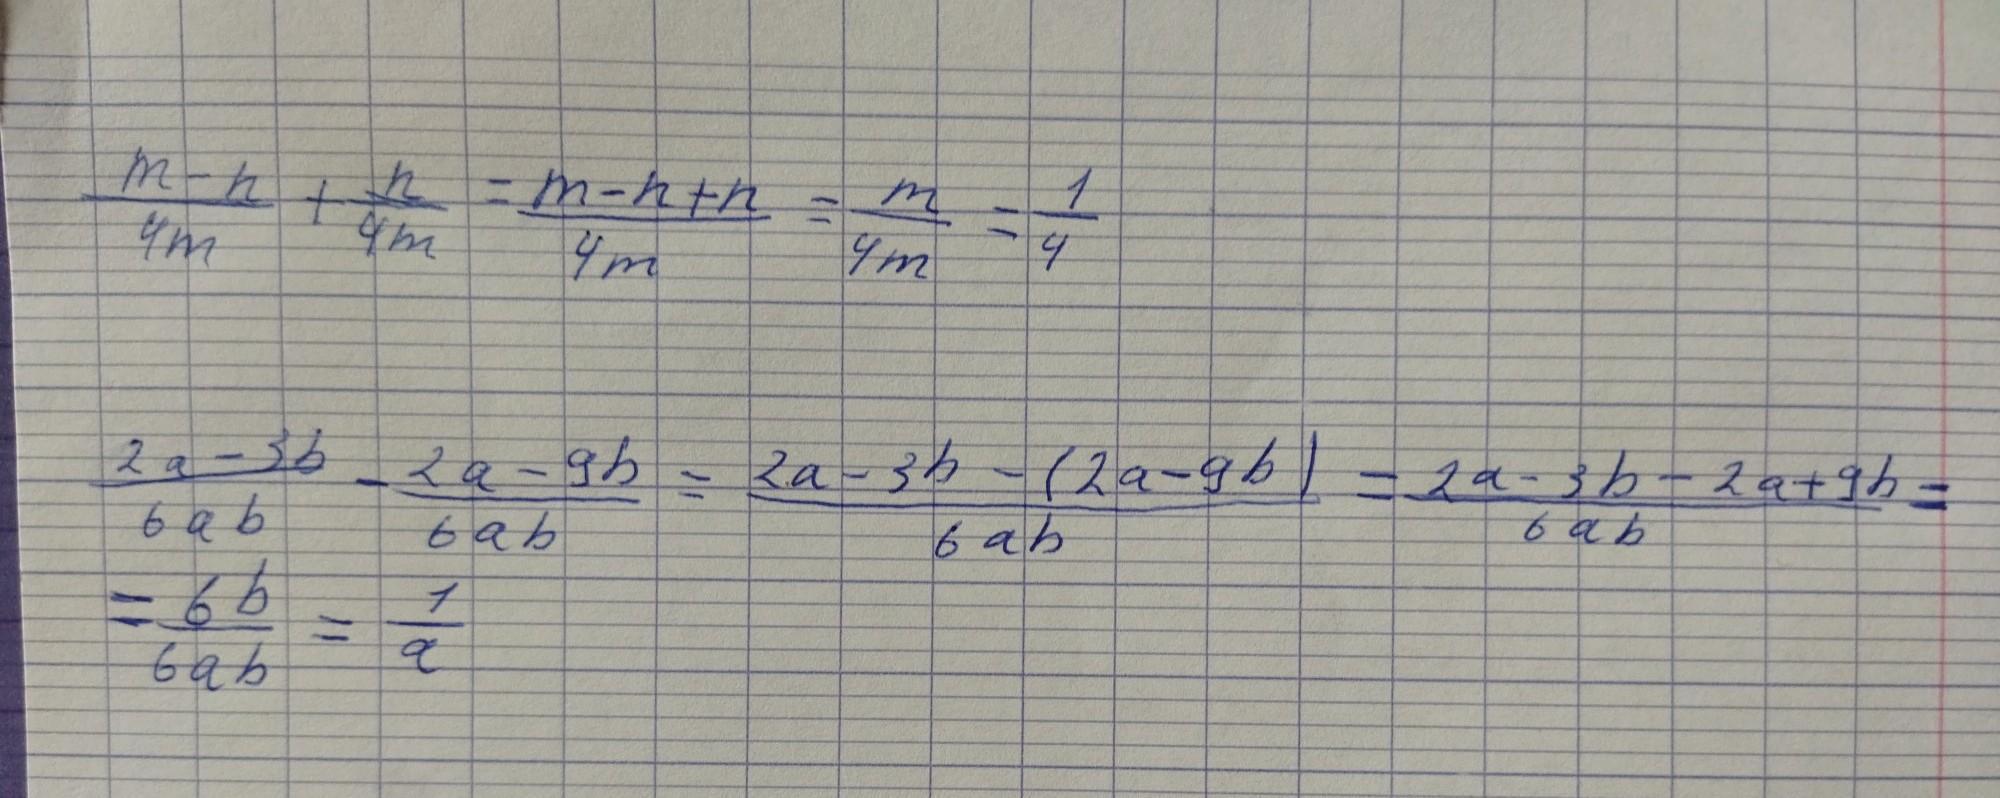 (m-n)/(4m) + n/(4m) = (m-n+n)/(4m) = m/(4m) = 1/4
(2a-3b)/(6ab) - (2a-9b)/(6ab) = (2a-3b-(2a-9b))/(6ab) = (2a-3b-2a+9b)/(6ab) =
= (6b)/(6ab) = 1/a